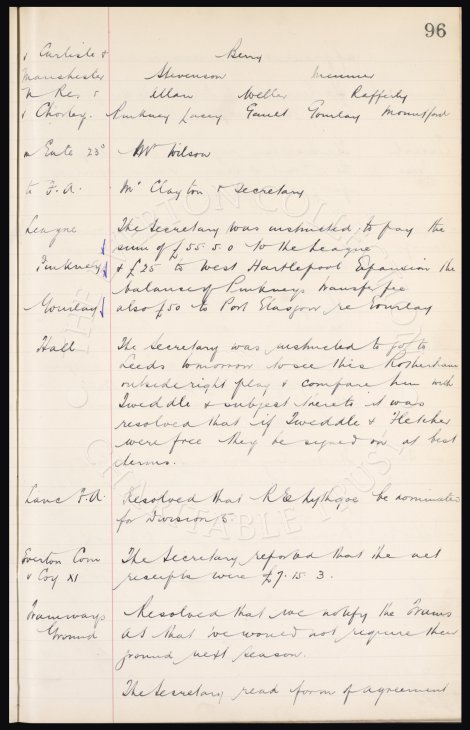 96
v Carlisle & Berry
Manchester Stevenson Menmuir
N Res. v Allan Weller Rafferty
v Chorley. Pinkney Lacey Gault Gourlay Mountford
n Exts 23rd Mr Wilson
to F.A. Mr Clayton & Secretary
League The Secretary was instructed to pay the
sum of £55.5.0 to the League
Pinkney & £25 to West Hartlepool Expansion the
balance of Pinkneys transfer fee
Gourlay also £50 to Port Glasgow re Gourlay
Hall The Secretary was instructed to go to
Leeds tomorrow to see this Rotherham
outside right play & compare him with
Tweddle & subject thereto it was
resolved that if Tweddle & Fletcher
were free they be signed on at best
terms.
Lanc F.A. Resolved that R E Lythgoe be nominated
for Division 5.
Everton Com The Secretary reported that the net
v Coy XI receipts were £7.15.3.
Tramways Resolved that we notify the Trams
Ground A.S that we would not require their
ground next season.
The Secretary read form of agreement